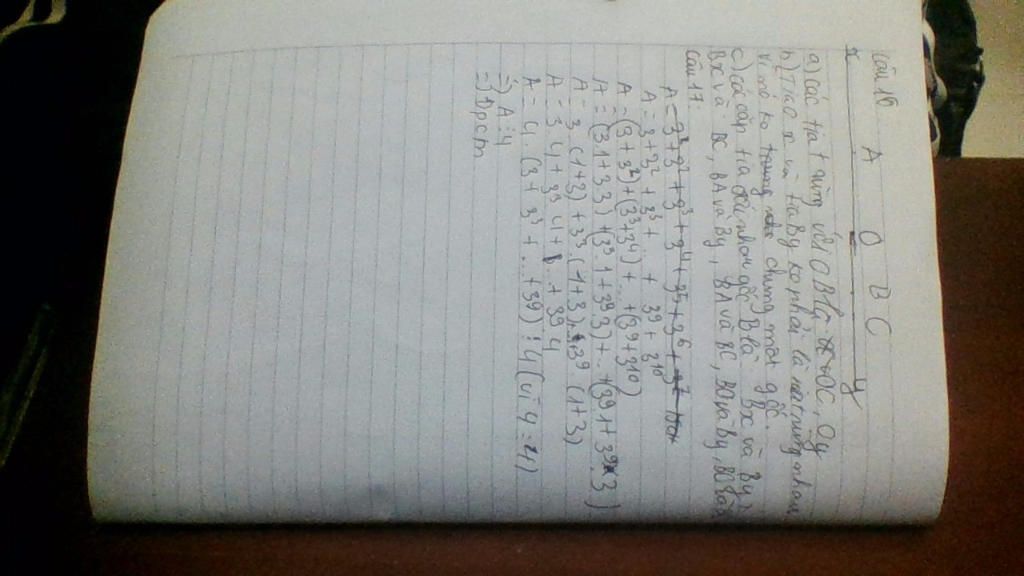 Câu 16
A O B C
x y
a) Các tia trùng với OB là OC, Oy
b) Tia Ox và tia By ko phải là hai tia trùng nhau
vì nó ko chung một gốc.
c) các cặp tia đối nhau gốc B là Bx và By,
Bx và BC, BA và By, BA và BC, BO và By, BO và BC
Câu 17
A = 3+3²+3³+3⁴+3⁵+3⁶+
A = 3+3²+3³+...+3⁹+3¹⁰
A = (3+3²)+(3³+3⁴)+...+(3⁹+3¹⁰)
A = (3.1+3.3)+(3³.1+3³.3)+...+(3⁹.1+3⁹.3)
A = 3.(1+3)+3³.(1+3)+...+3⁹.(1+3)
A = 3.4+3³.4+...+3⁹.4
A = 4.(3+3³+...+3⁹)⋮4 (vì 4⋮4)
=) A⋮4
=) Đpcm